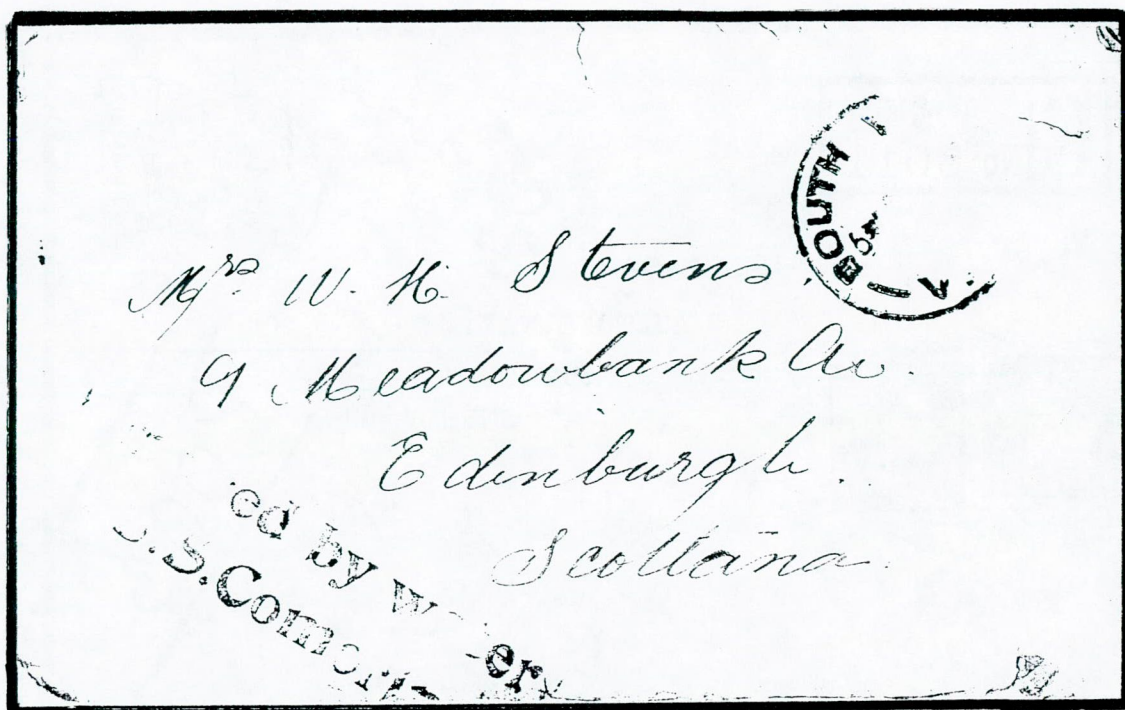 BOUTH
Mrs W. H. Stevens
9 Meadowbank Av.
Edinburgh.
Scotland
ed by W er
S.S. Comor